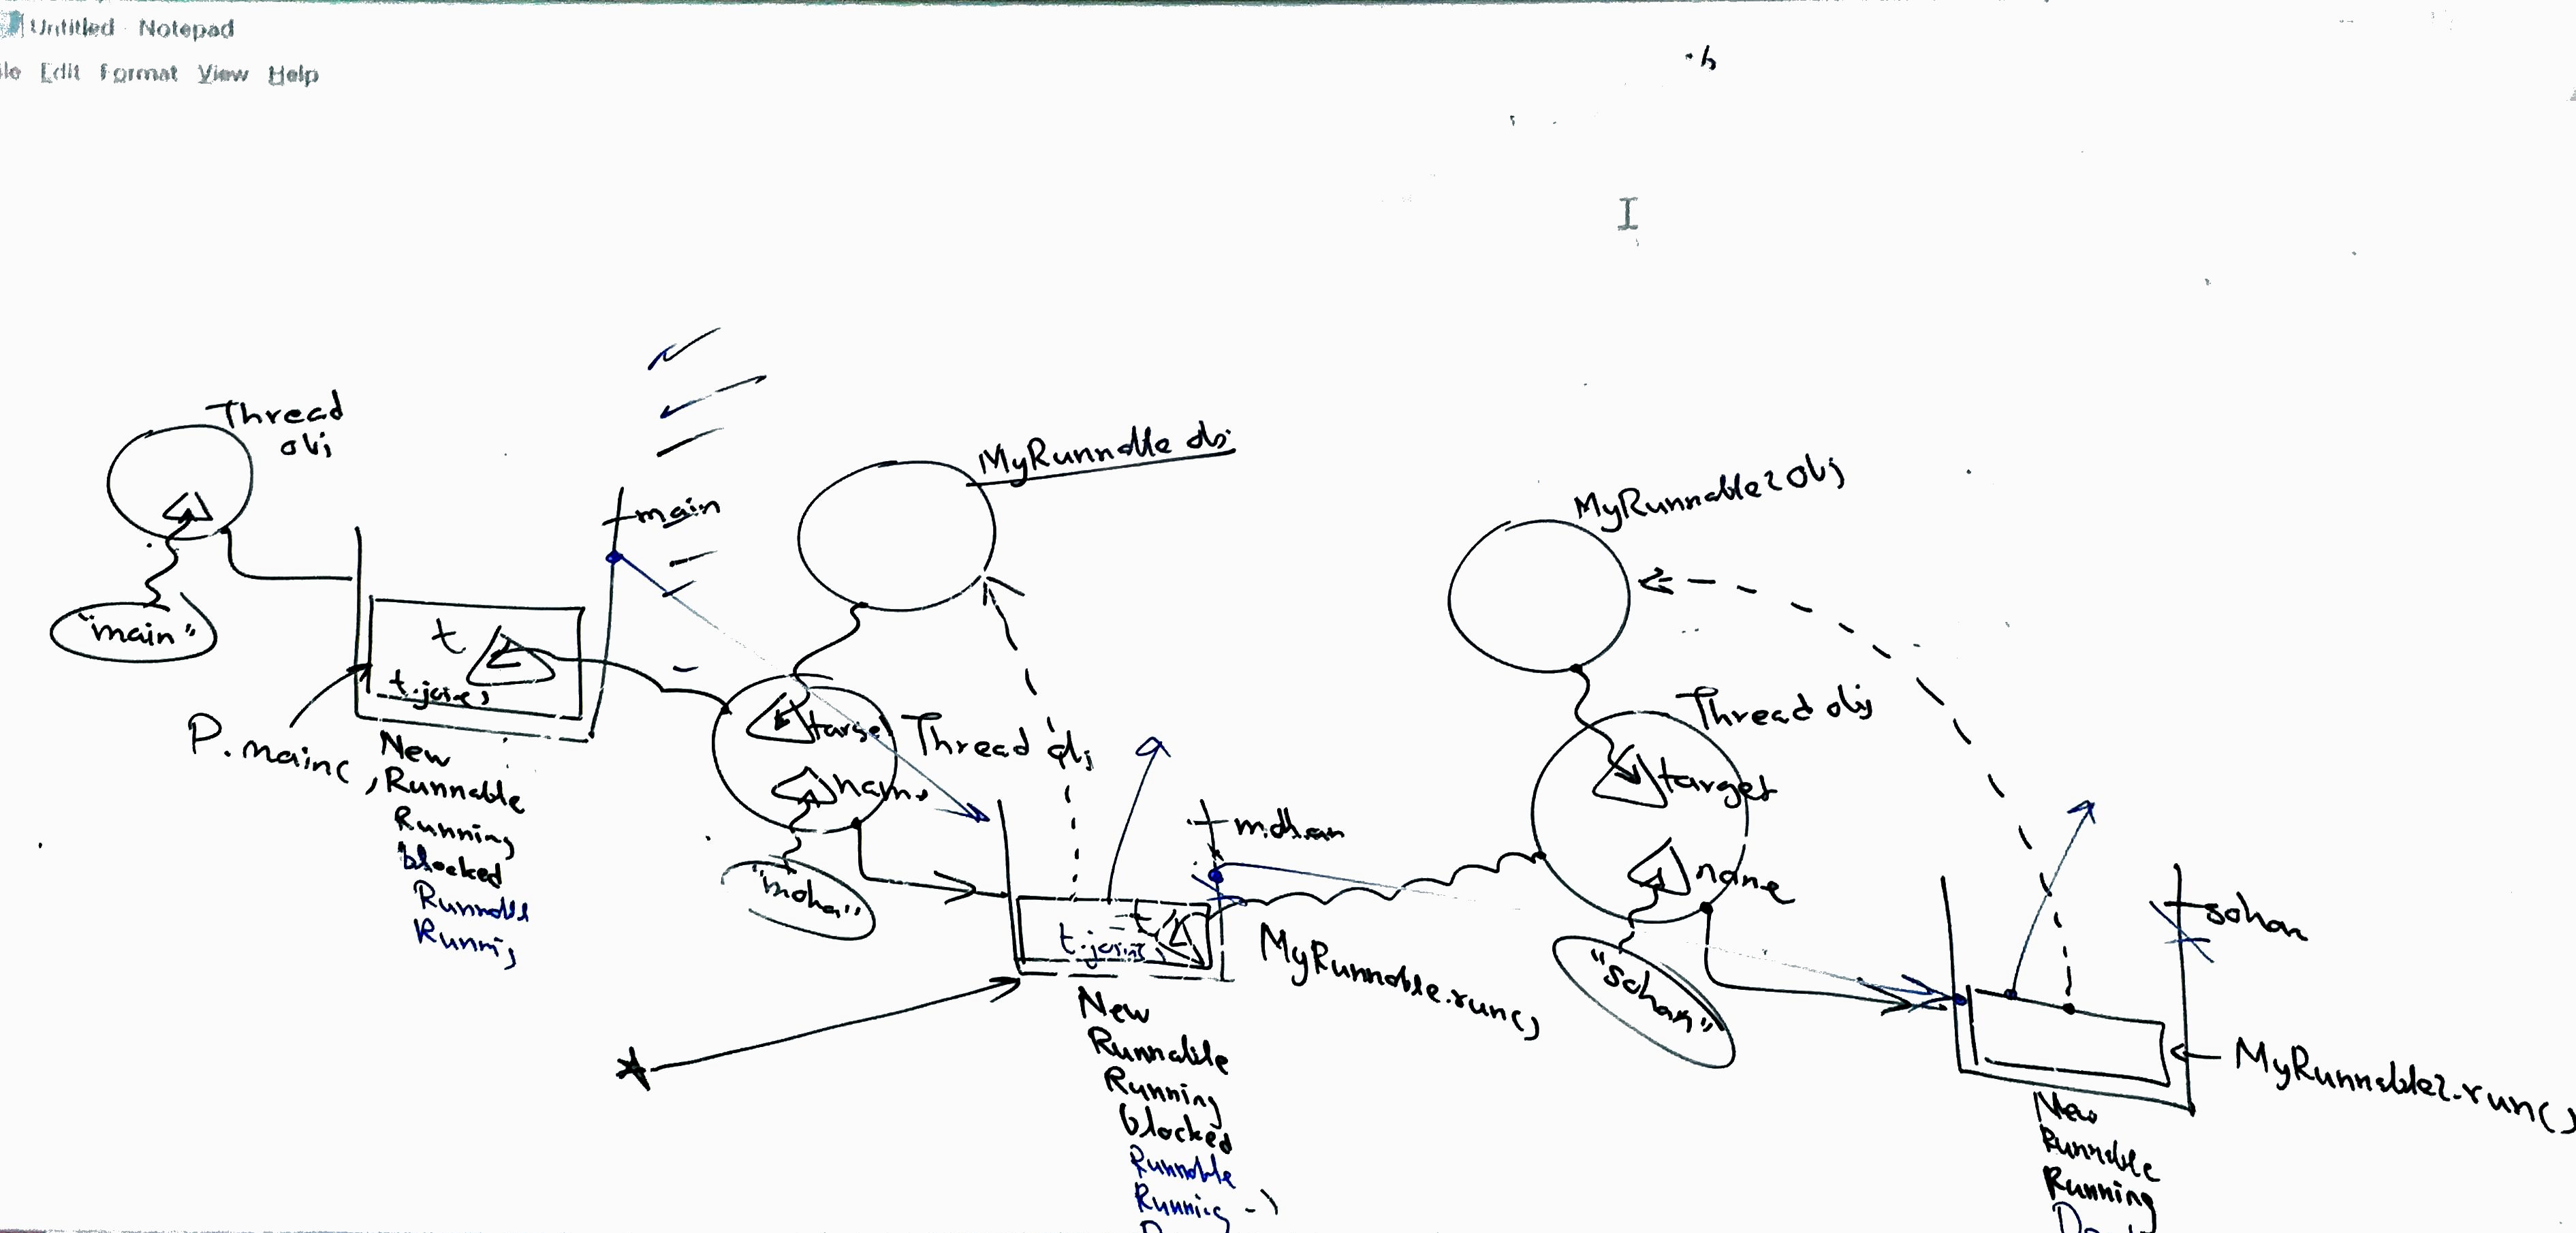 Untitled - Notepad
File Edit Format View Help
Thread
obj
"main"
t
t.join()
P.main()
New
Runnable
Running
blocked
Runnable
Running
main
MyRunnable obj
target
name
Thread obj
"mohan"
mohan
t
t.join()
MyRunnable.run()
New
Runnable
Running
blocked
Runnable
Running
MyRunnable2 obj
Thread obj
target
name
"Sohan"
sohan
MyRunnable2.run()
New
Runnable
Running